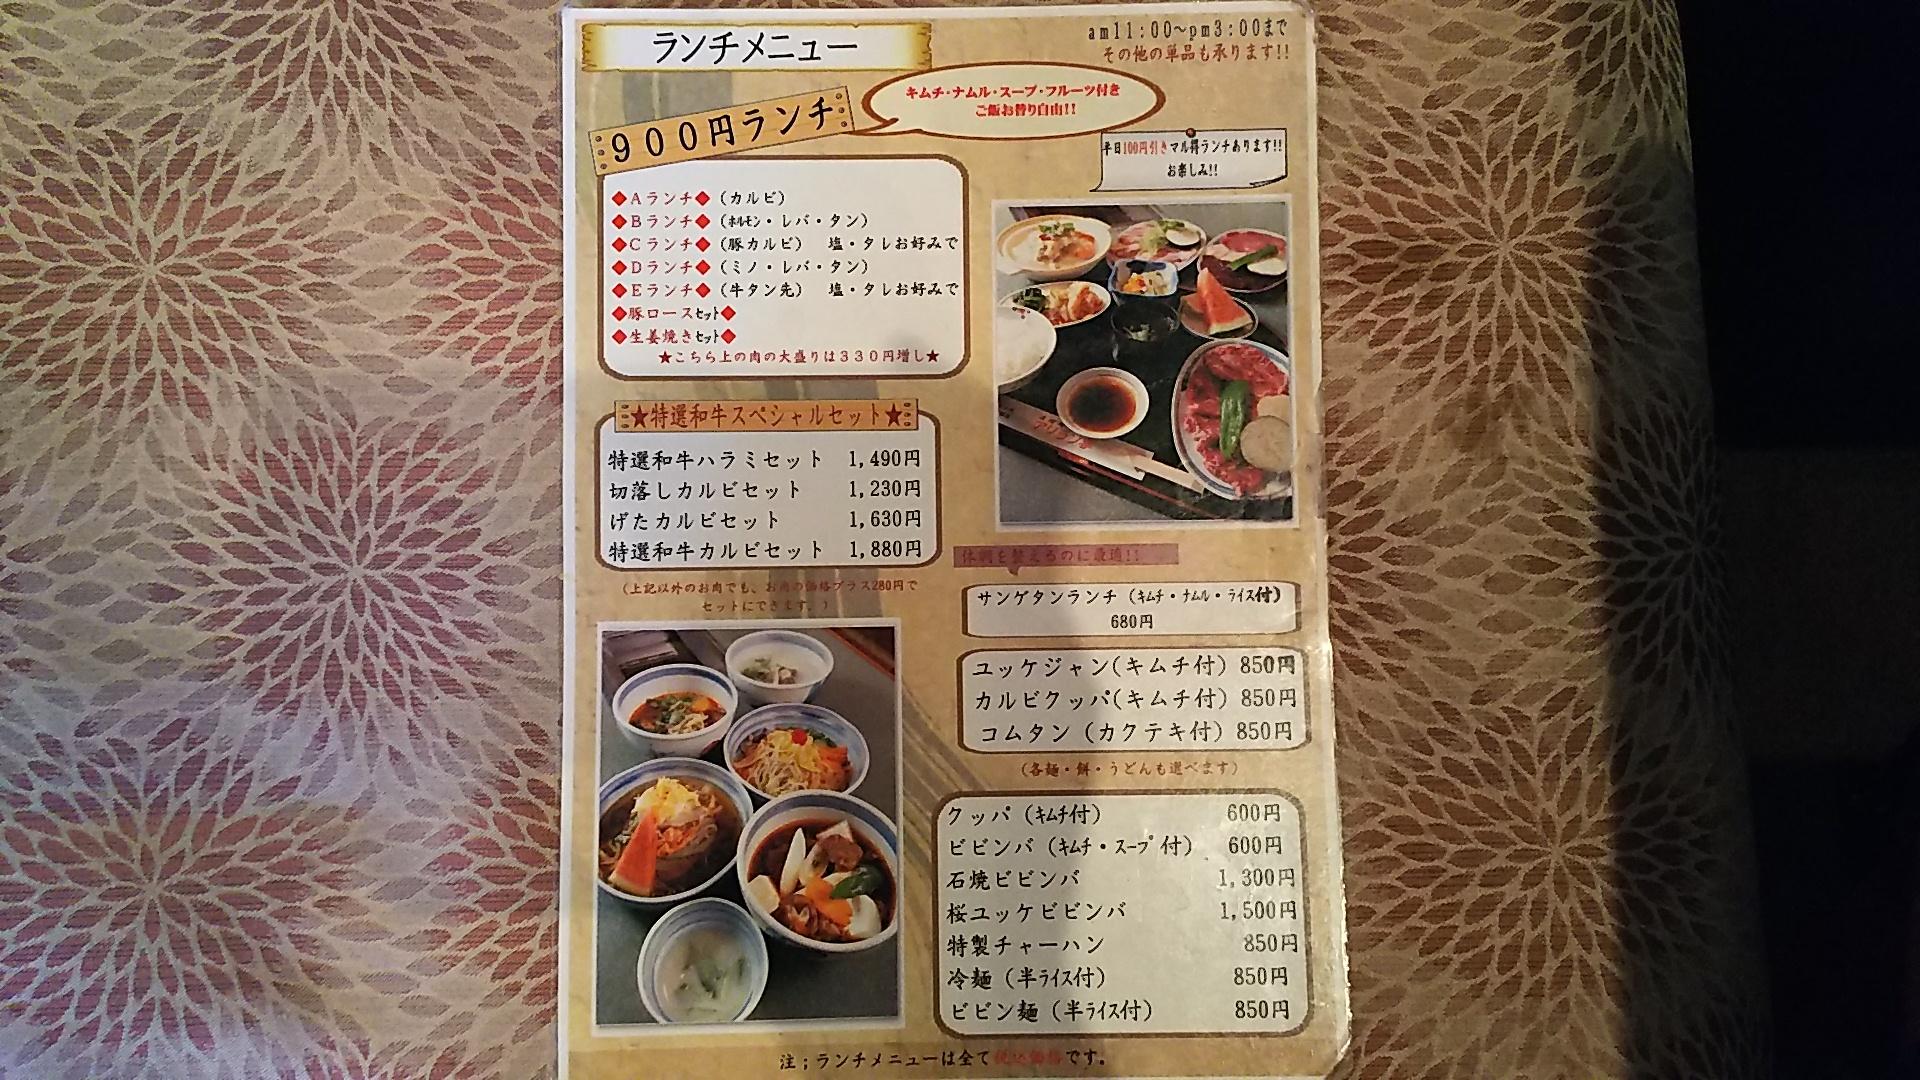 ランチメニュー
am11:00〜pm3:00まで
その他の単品も承ります!!
キムチ・ナムル・スープ・フルーツ付き
ご飯お替り自由!!
900円ランチ
平日100円引きマル得ランチあります!!
お楽しみ!!
◆Aランチ◆（カルビ）
◆Bランチ◆（ホルモン・レバ・タン）
◆Cランチ◆（豚カルビ） 塩・タレお好みで
◆Dランチ◆（ミノ・レバ・タン）
◆Eランチ◆（牛タン先） 塩・タレお好みで
◆豚ロースセット◆
◆生姜焼きセット◆
★こちら上の肉の大盛りは330円増し★
★特選和牛スペシャルセット★
特選和牛ハラミセット 1,490円
切落しカルビセット 1,230円
げたカルビセット 1,630円
特選和牛カルビセット 1,880円
（上記以外のお肉でも、お肉の価格プラス280円で
セットにできます。）
体調を整えるのに最適!!
サンゲタンランチ（キムチ・ナムル・ライス付）
680円
ユッケジャン(キムチ付) 850円
カルビクッパ(キムチ付) 850円
コムタン（カクテキ付）850円
（各麺・餅・うどんも選べます）
クッパ（キムチ付） 600円
ビビンバ（キムチ・スープ付） 600円
石焼ビビンバ 1,300円
桜ユッケビビンバ 1,500円
特製チャーハン 850円
冷麺（半ライス付） 850円
ビビン麺（半ライス付） 850円
注；ランチメニューは全て税込価格です。